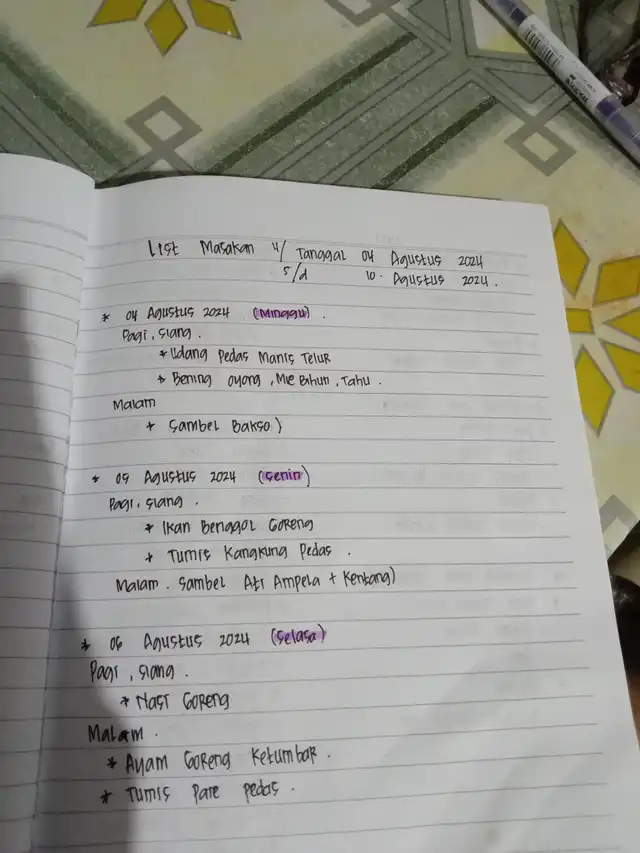 List Masakan u/ Tanggal 04 Agustus 2024
s/d 10. Agustus 2024.
* 04 Agustus 2024 (Minggu).
Pagi, siang.
* Udang Pedas Manis Telur
* Bening oyong, Mie Bihun, Tahu.
Malam
* Sambel Bakso)
* 05 Agustus 2024 (Senin)
Pagi, siang.
* Ikan Benggol Goreng
* Tumis Kangkung Pedas.
Malam. Sambel Ati Ampela + Kentang)
* 06 Agustus 2024 (Selasa)
Pagi, siang.
* Nasi Goreng
Malam.
* Ayam Goreng Ketumbar.
* Tumis Pare pedas.